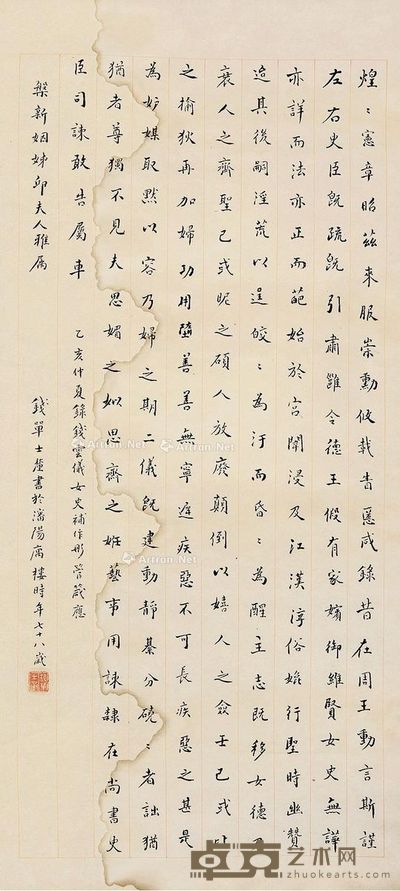 煌〻憲章昭茲來服崇勳攸載書慝咸錄昔在周王動言斯謹
左右史臣旣疏旣引肅雝令德王假有家嬪御維賢女史無譁
亦詳而法亦正而葩始於宮闈浸及江漢淳俗媺行聖時幽贊
迨其後嗣淫荒以逞皎〻為汙而昏〻為醒主志既移女德
衰人之齊聖已或眤之碩人放廢顛倒以嬉人之僉壬已或
之揄狄再加婦功用隳善善無寧遲疾惡不可長疾惡之甚是
為妒媒取默以容乃婦之期二儀旣建動靜綦分硗〻者詘猶
猶者尊獨不見夫思媚之如思齊之妊藝事用諫隸在尚書史
臣司諫敢告屬車
乙亥仲夏錄錢雲儀女史補作彤管箴應
槃新姻娣邱夫人雅屬
錢單士釐書於瀋陽寓樓時年七十八歲
Artron.Net
卓克艺术网
www.zhuokearts.com